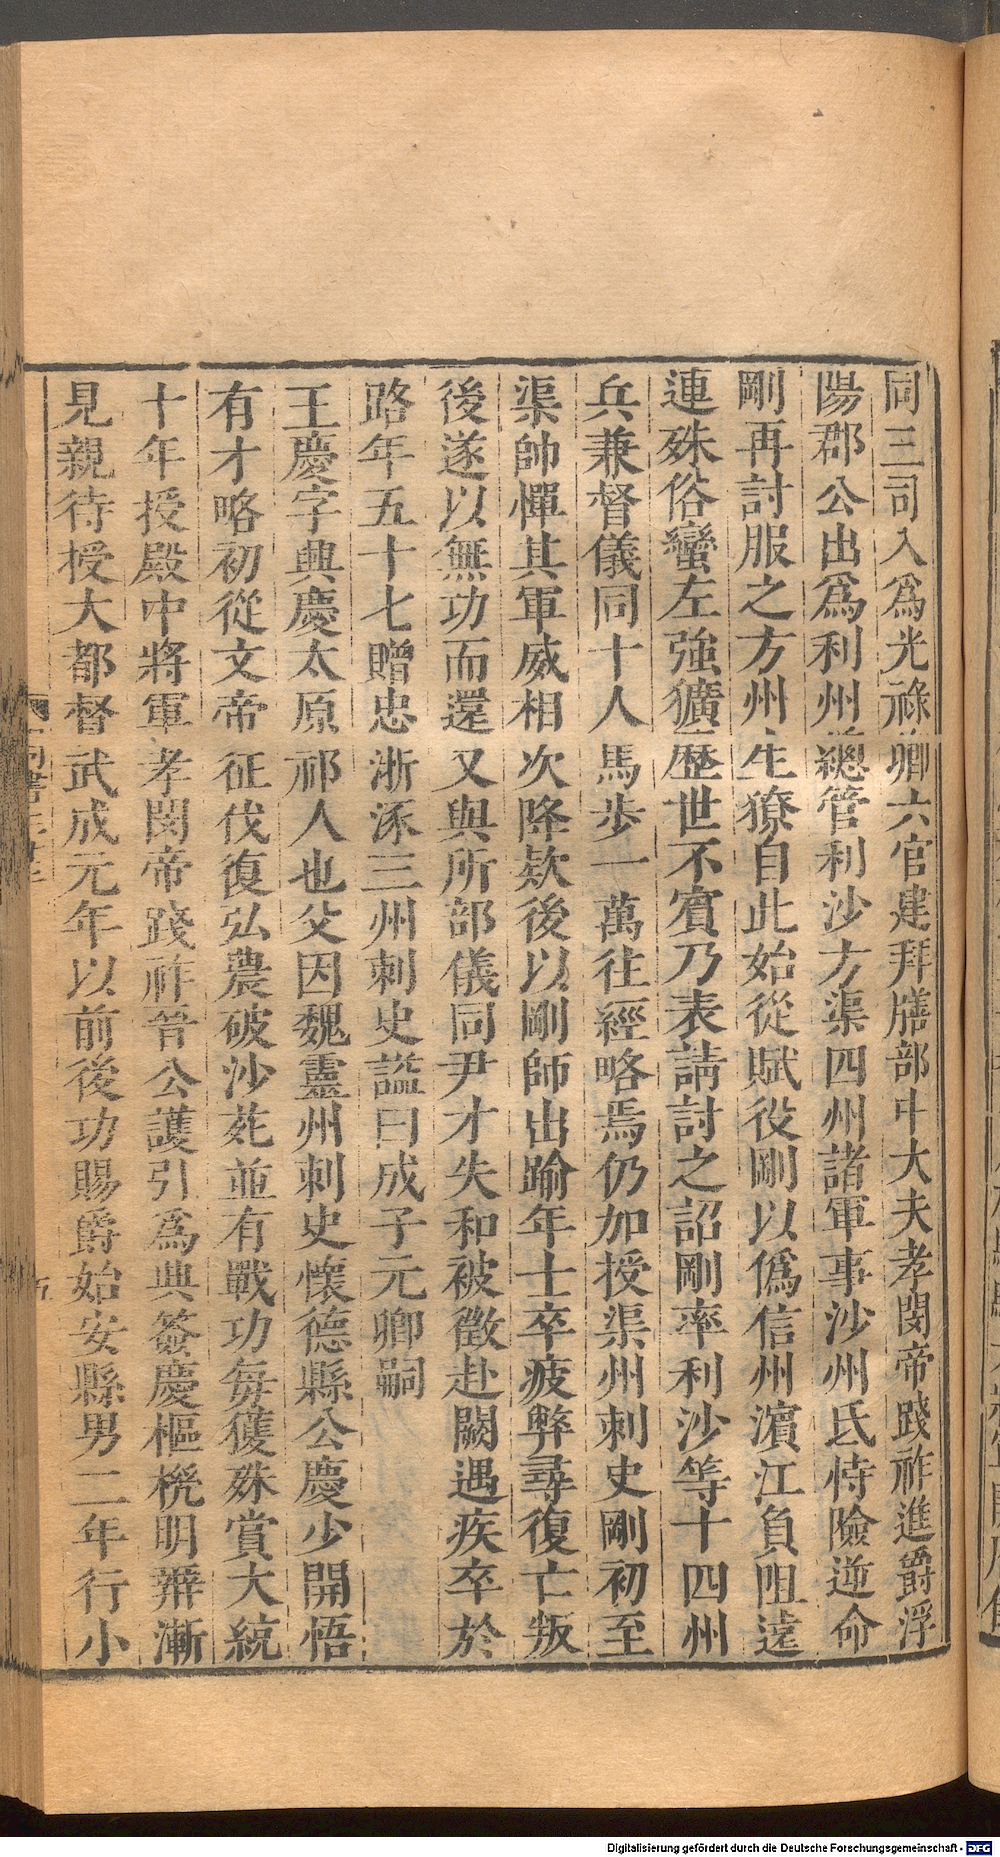 同三司入爲光祿卿六官建拜膳部中大夫孝閔帝踐祚進爵浮
陽郡公出爲利州總管利沙方渠四州諸軍事沙州氐恃險逆命
剛再討服之方州生獠自此始從賦役剛以僞信州濱江負阻遠
連殊俗蠻左強獷歷世不賓乃表請討之詔剛率利沙等十四州
兵兼督儀同十人馬步一萬往經略焉仍加授渠州刺史剛初至
渠帥憚其軍威相次降欵後以剛師出踰年士卒疲弊尋復亡叛
後遂以無功而還又與所部儀同尹才失和被徵赴闕遇疾卒於
路年五十七贈忠浙涿三州刺史諡曰成子元卿嗣
王慶字興慶太原祁人也父因魏靈州刺史懷德縣公慶少開悟
有才略初從文帝征伐復弘農破沙苑並有戰功每獲殊賞大統
十年授殿中將軍孝閔帝踐祚晉公護引爲典籤慶樞機明辨漸
見親待授大都督武成元年以前後功賜爵始安縣男二年行小
Digitalisierung gefördert durch die Deutsche Forschungsgemeinschaft - DFG